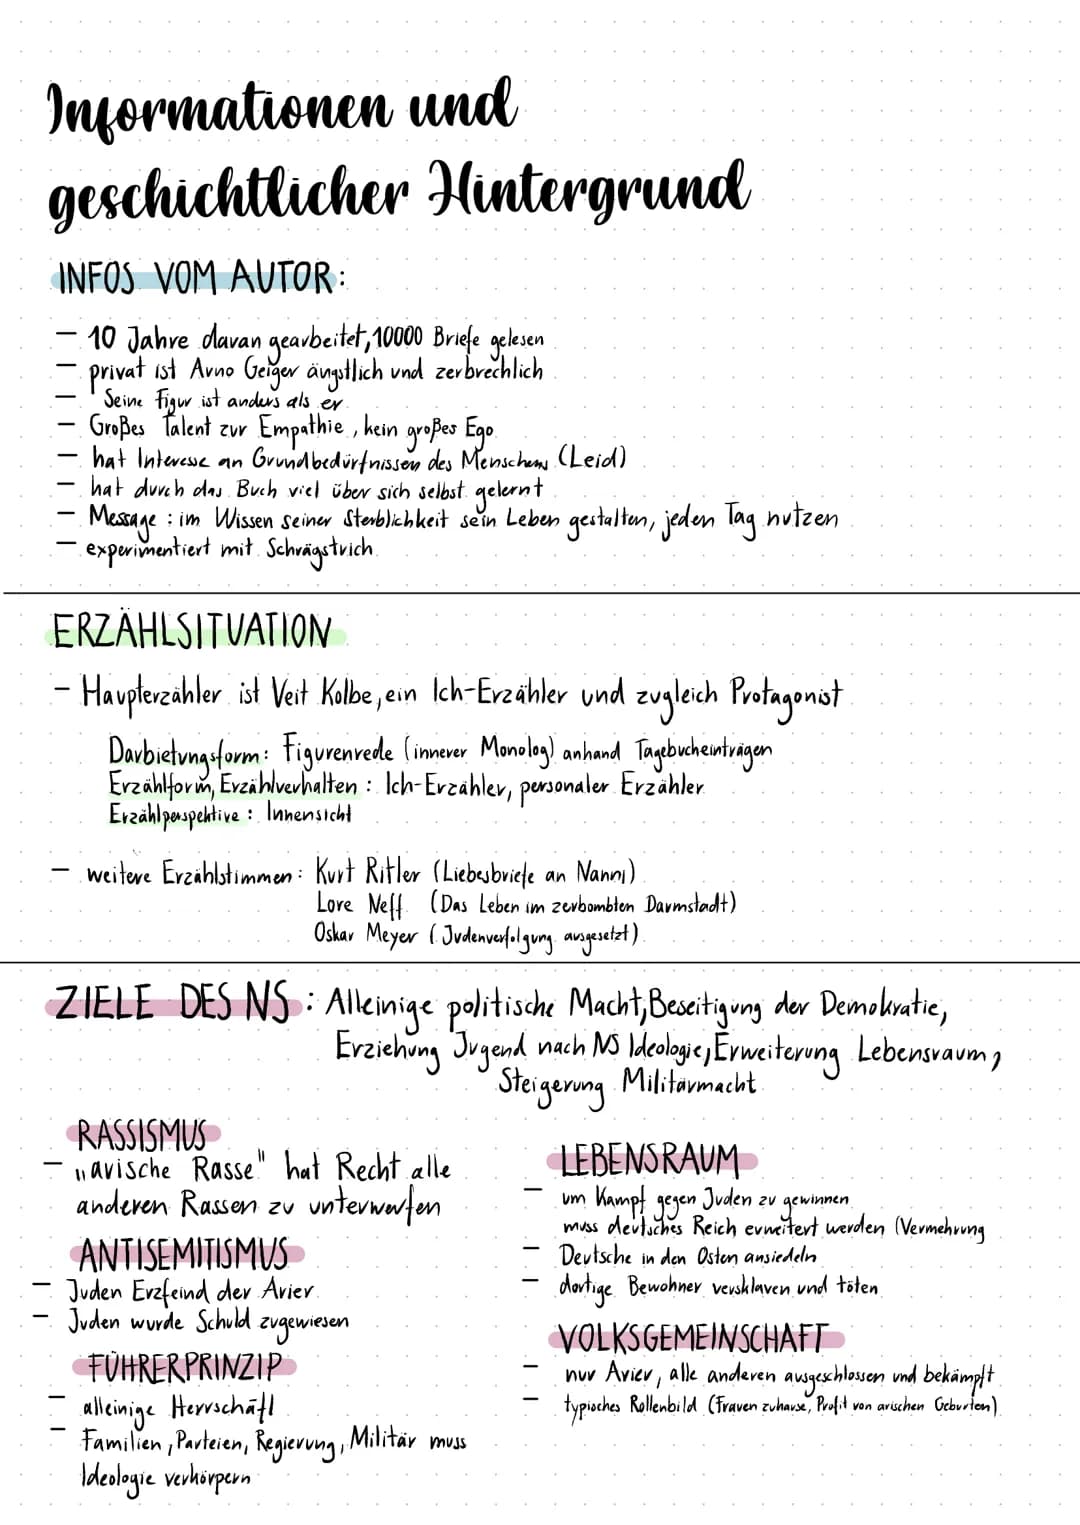 Informationen und
geschichtlicher Hintergrund
INFOS VOM AUTOR:
– 10 Jahre daran gearbeitet, 10000 Briefe gelesen
– privat ist Arno Geiger ängstlich und zerbrechlich
– Seine Figur ist anders als er
– Großes Talent zur Empathie, kein großes Ego
– hat Interesse an Grundbedürfnissen des Menschens (Leid)
– hat durch das Buch viel über sich selbst gelernt
– Message: im Wissen seiner Sterblichkeit sein Leben gestalten, jeden Tag nutzen
– experimentiert mit Schrägstrich
ERZÄHLSITUATION
– Haupterzähler ist Veit Kolbe, ein Ich-Erzähler und zugleich Protagonist
Darbietungsform: Figurenrede (innerer Monolog) anhand Tagebucheinträgen
Erzählform, Erzählverhalten: Ich-Erzähler, personaler Erzähler
Erzählperspektive: Innensicht
– weitere Erzählstimmen: Kurt Ritler (Liebesbriefe an Nanni)
Lore Neff (Das Leben im zerbombten Darmstadt)
Oskar Meyer (Judenverfolgung ausgesetzt)
ZIELE DES NS: Alleinige politische Macht, Beseitigung der Demokratie,
Erziehung Jugend nach NS Ideologie, Erweiterung Lebensraum,
Steigerung Militärmacht
RASSISMUS
– „arische Rasse" hat Recht alle
anderen Rassen zu unterwerfen
ANTISEMITISMUS
– Juden Erzfeind der Arier
– Juden wurde Schuld zugewiesen
FÜHRERPRINZIP
– alleinige Herrschaft
– Familien, Parteien, Regierung, Militär muss
Ideologie verkörpern
LEBENSRAUM
– um Kampf gegen Juden zu gewinnen
muss deutsches Reich erweitert werden (Vermehrung
– Deutsche in den Osten ansiedeln
– dortige Bewohner versklaven und töten
VOLKSGEMEINSCHAFT
– nur Arier, alle anderen ausgeschlossen und bekämpft
– typisches Rollenbild (Frauen zuhause, Profit von arischen Geburten)